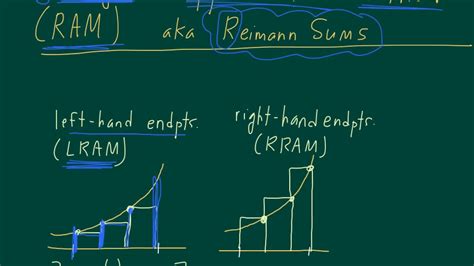 (RAM) aka Reimann Sums
left-hand endpts. right-hand endpts.
(LRAM) (RRAM)